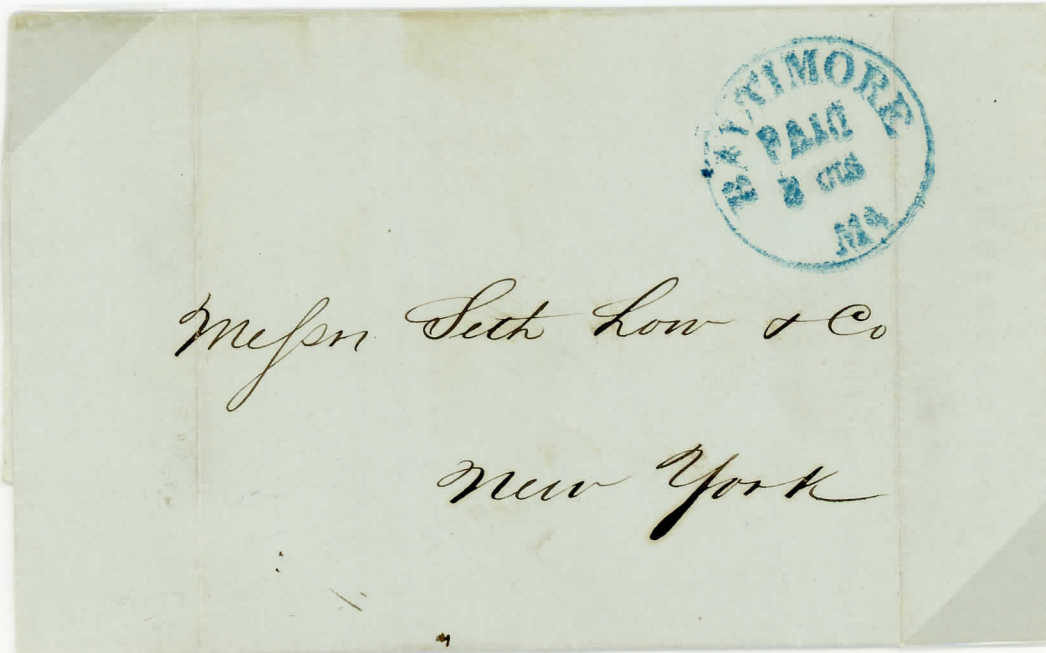 BALTIMORE
PAID
3 cts
Md
Messrs Seth Low & Co
New York